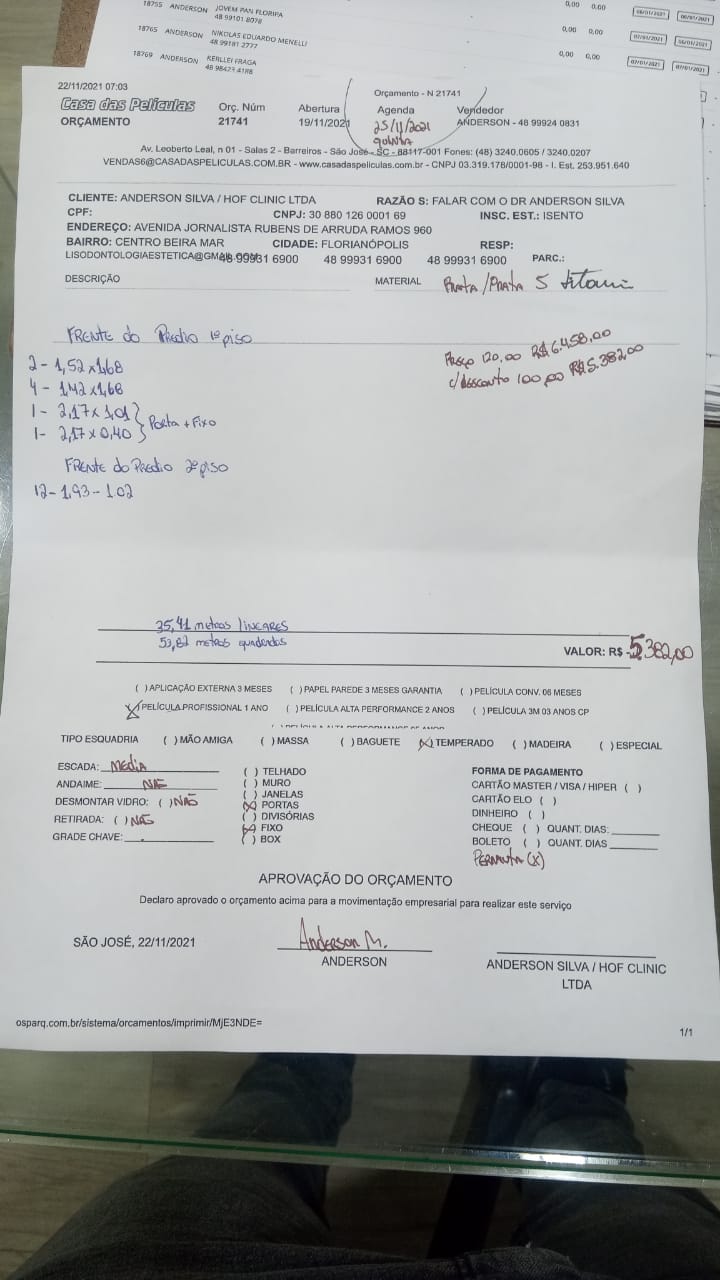 18755 ANDERSON JOVEM PAN FLORIPA
48 99101 8078
0,00 0,00 06/01/2021 06/01/2021
18765 ANDERSON NIKOLAS EDUARDO MENELLI
48 99181 2777
0,00 0,00 07/01/2021 06/01/2021
18769 ANDERSON KERLLEI FRAGA
48 98423 4188
0,00 0,00 07/01/2021 07/01/2021
22/11/2021 07:03
Orçamento - N 21741
Casa das Películas Orç. Núm Abertura Agenda Vendedor
ORÇAMENTO 21741 19/11/2021 25/11/2021 ANDERSON - 48 99924 0831
QUINTA
Av. Leoberto Leal, n 01 - Salas 2 - Barreiros - São José - SC - 88117-001 Fones: (48) 3240.0605 / 3240.0207
VENDAS6@CASADASPELICULAS.COM.BR - www.casadaspeliculas.com.br - CNPJ 03.319.178/0001-98 - I. Est. 253.951.640
CLIENTE: ANDERSON SILVA / HOF CLINIC LTDA RAZÃO S: FALAR COM O DR ANDERSON SILVA
CPF: CNPJ: 30 880 126 0001 69 INSC. EST.: ISENTO
ENDEREÇO: AVENIDA JORNALISTA RUBENS DE ARRUDA RAMOS 960
BAIRRO: CENTRO BEIRA MAR CIDADE: FLORIANÓPOLIS RESP:
LISODONTOLOGIAESTETICA@GMAIL.COM 48 99931 6900 48 99931 6900 48 99931 6900 PARC.:
DESCRIÇÃO MATERIAL PRATA/PRATA 5
FRENTE do PREDIO 1º piso
PREÇO 120,00 R$ 6.458,00
c/ desconto 100,00 R$ 5.382,00
2 - 1,52 x 1,68
4 - 1,42 x 1,68
1 - 2,17 x 1,01
1 - 2,17 x 0,40 } PORTA + FIXO
FRENTE do PREDIO 2º piso
12 - 1,93 - 1.02
35,41 metros LINEARES
53,82 metros quadrados
VALOR: R$ - 5.382,00
( ) APLICAÇÃO EXTERNA 3 MESES ( ) PAPEL PAREDE 3 MESES GARANTIA ( ) PELÍCULA CONV. 06 MESES
(X) PELÍCULA PROFISSIONAL 1 ANO ( ) PELÍCULA ALTA PERFORMANCE 2 ANOS ( ) PELÍCULA 3M 03 ANOS CP
TIPO ESQUADRIA ( ) MÃO AMIGA ( ) MASSA ( ) BAGUETE (X) TEMPERADO ( ) MADEIRA ( ) ESPECIAL
ESCADA: MEDIA
ANDAIME: NÃO
DESMONTAR VIDRO: ( ) NÃO
RETIRADA: ( ) NÃO
GRADE CHAVE:
( ) TELHADO
( ) MURO
( ) JANELAS
(X) PORTAS
( ) DIVISÓRIAS
(X) FIXO
( ) BOX
FORMA DE PAGAMENTO
CARTÃO MASTER / VISA / HIPER ( )
CARTÃO ELO ( )
DINHEIRO ( )
CHEQUE ( ) QUANT. DIAS:
BOLETO ( ) QUANT. DIAS
PERMUTA (X)
APROVAÇÃO DO ORÇAMENTO
Declaro aprovado o orçamento acima para a movimentação empresarial para realizar este serviço
SÃO JOSÉ, 22/11/2021 Anderson M.
ANDERSON
ANDERSON SILVA / HOF CLINIC
LTDA
osparq.com.br/sistema/orcamentos/imprimir/MjE3NDE=
1/1